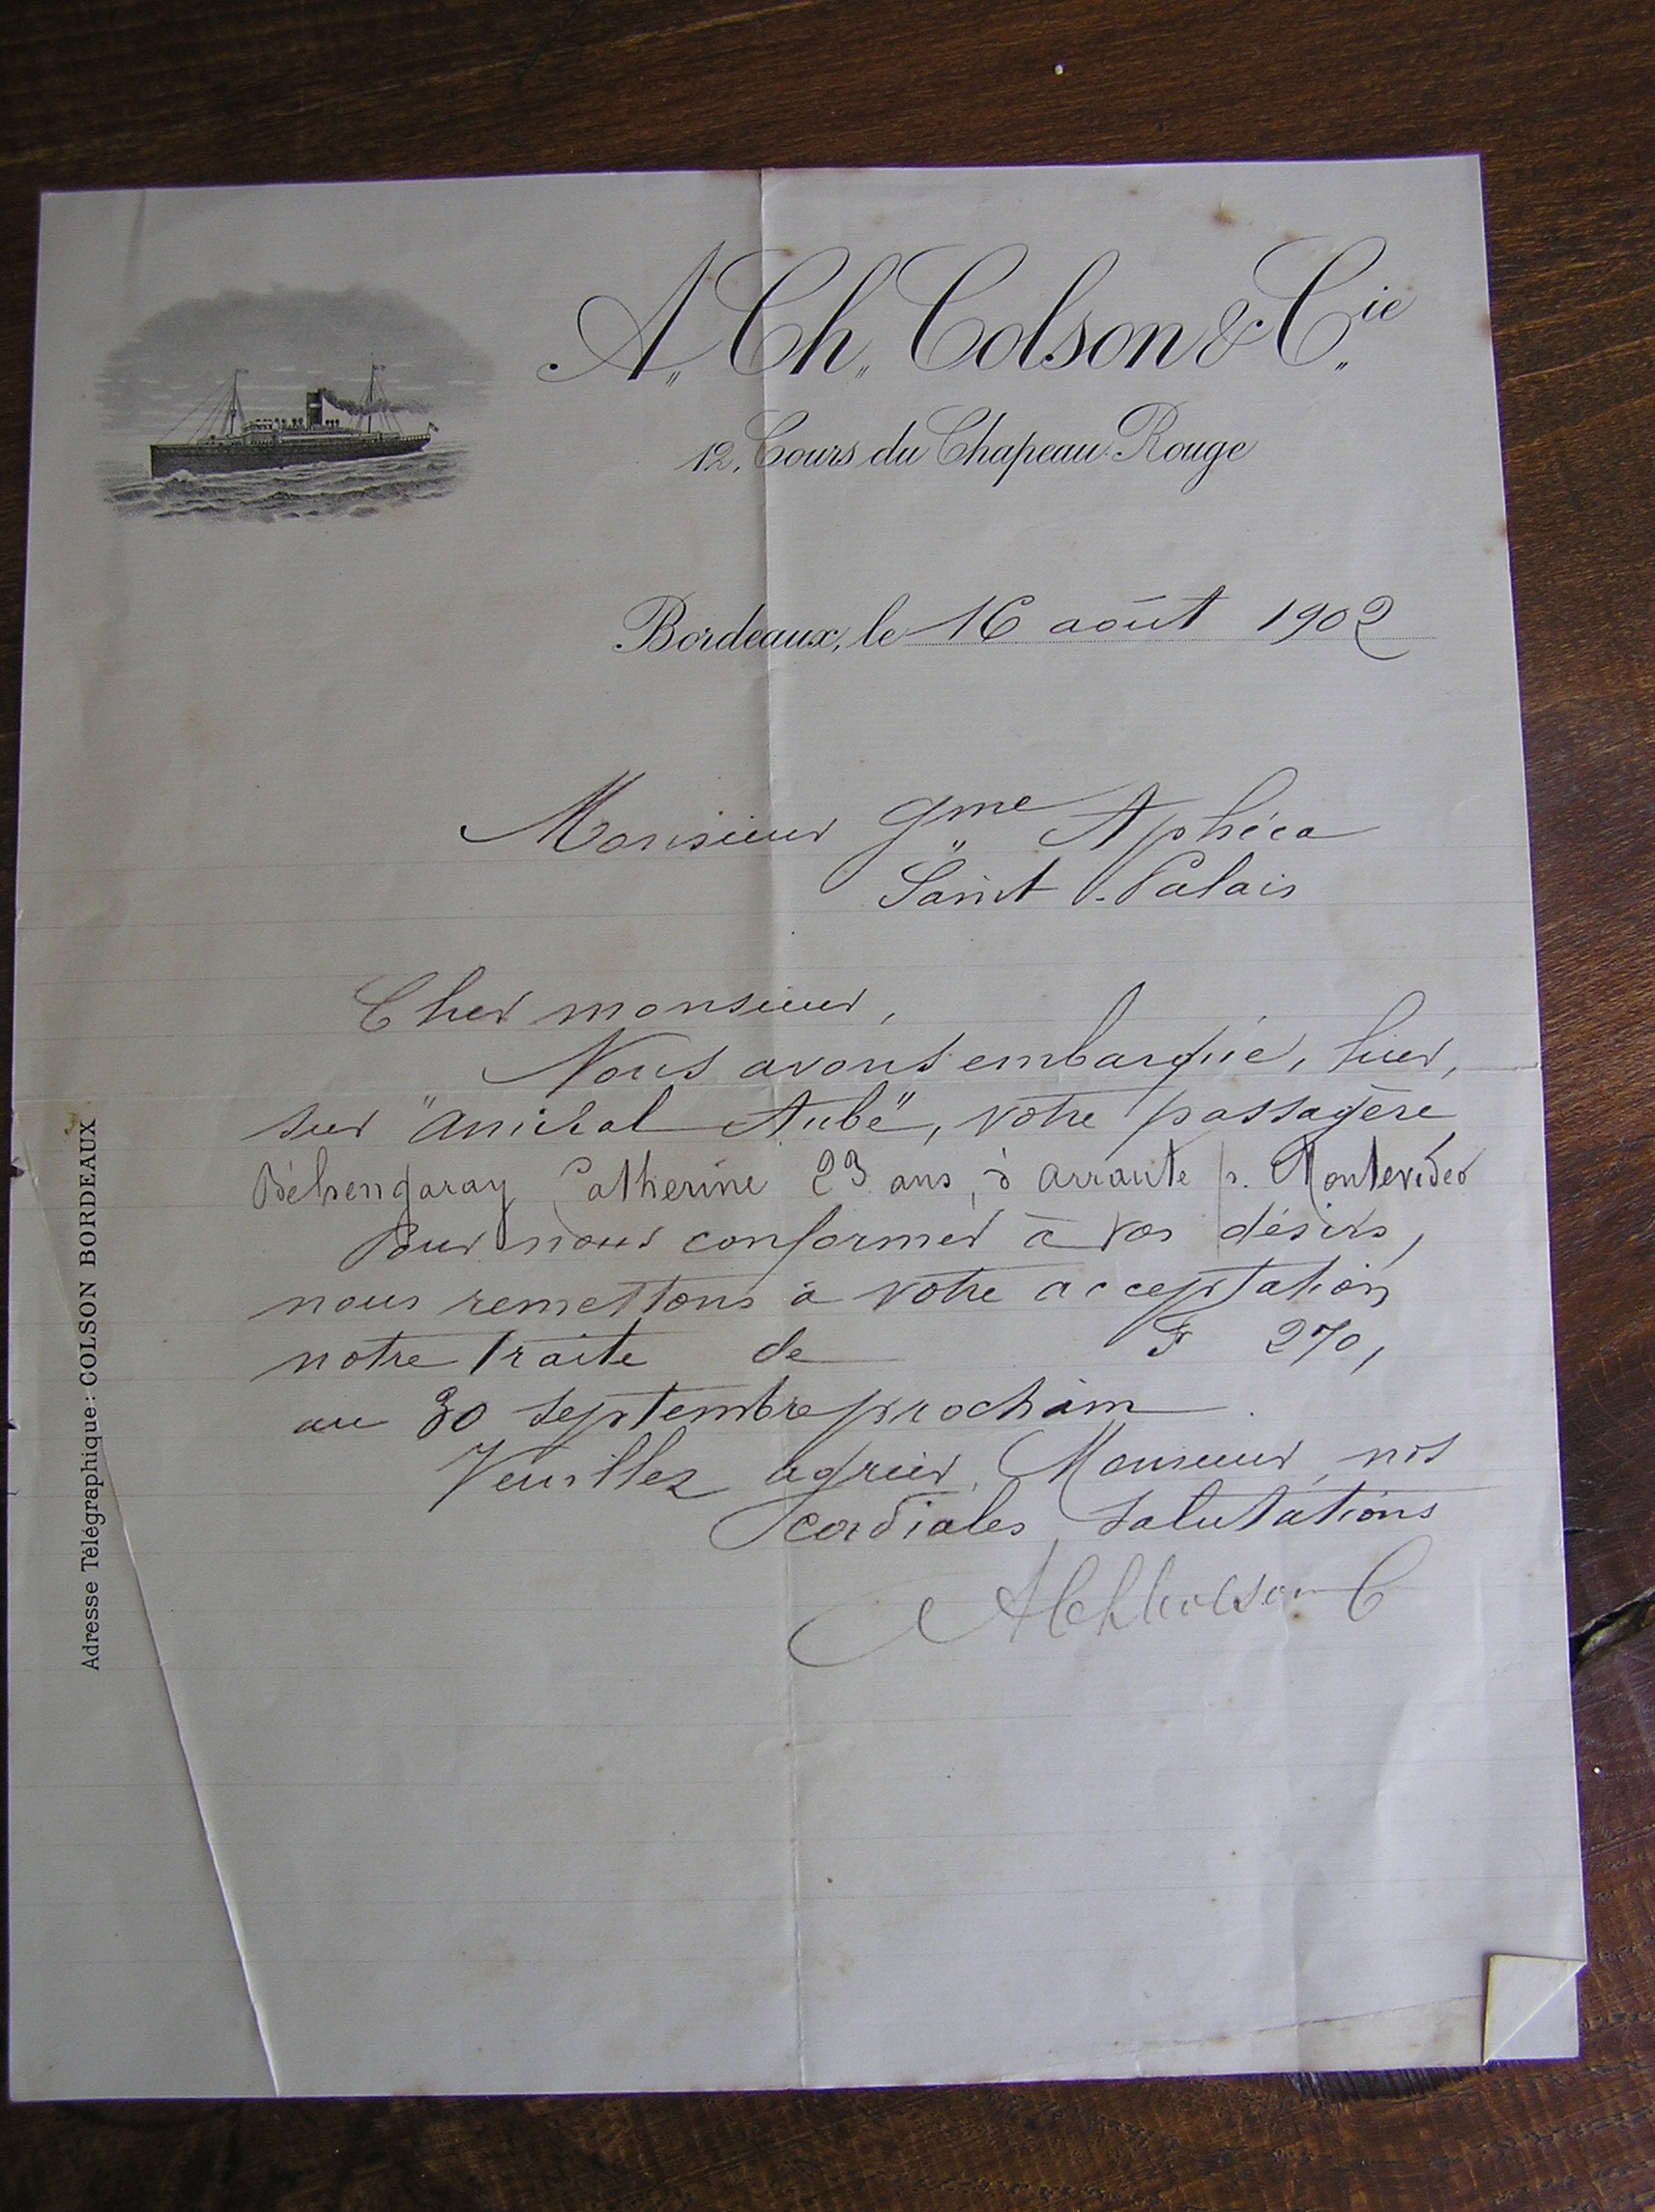 A. Ch. Colson & Cie
12, Cours du Chapeau-Rouge
Bordeaux, le 16 août 1902
Monsieur Gme Aphéca
Saint-Palais
Cher monsieur,
Nous avons embarqué, hier,
sur "Amiral Aube", votre passagère
Béhengaray Catherine 23 ans, à Arraute p. Montevideo
Pour nous conformer à vos désirs,
nous remettons à votre acceptation
notre traite de F 270,
au 30 septembre prochain.
Veuillez agréer, Monsieur, nos
cordiales salutations
A Ch Colson C
Adresse Télégraphique: COLSON BORDEAUX